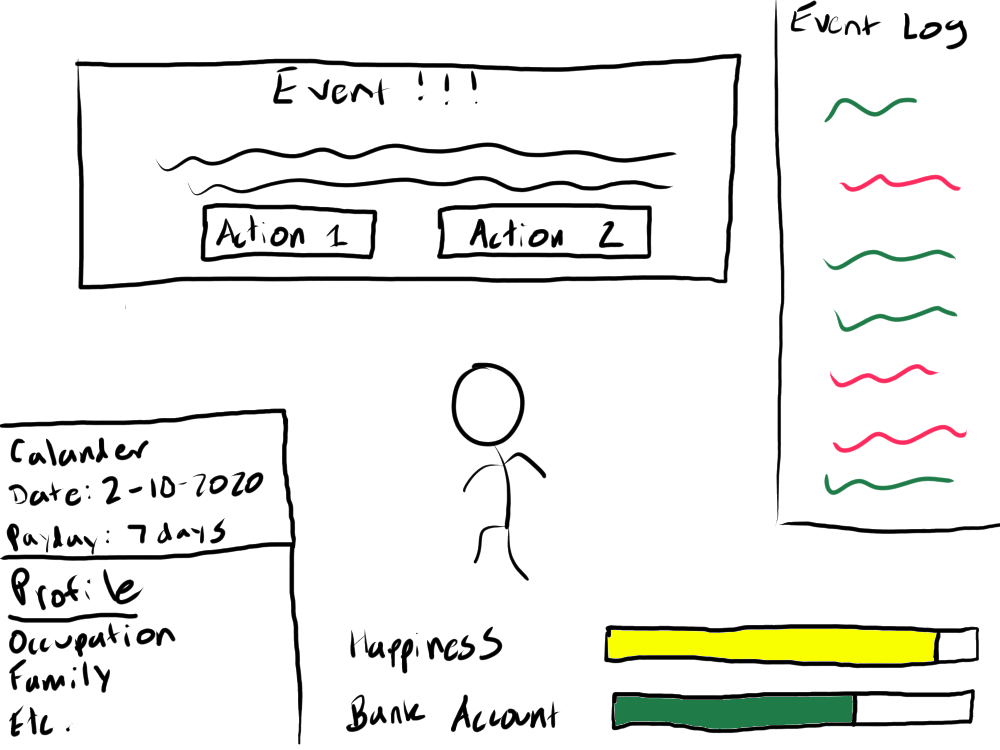 Event !!!
Action 1
Action 2
Event Log
Calander
Date: 2-10-2020
Payday: 7 days
Profile
Occupation
Family
Etc.
Happiness
Bank Account